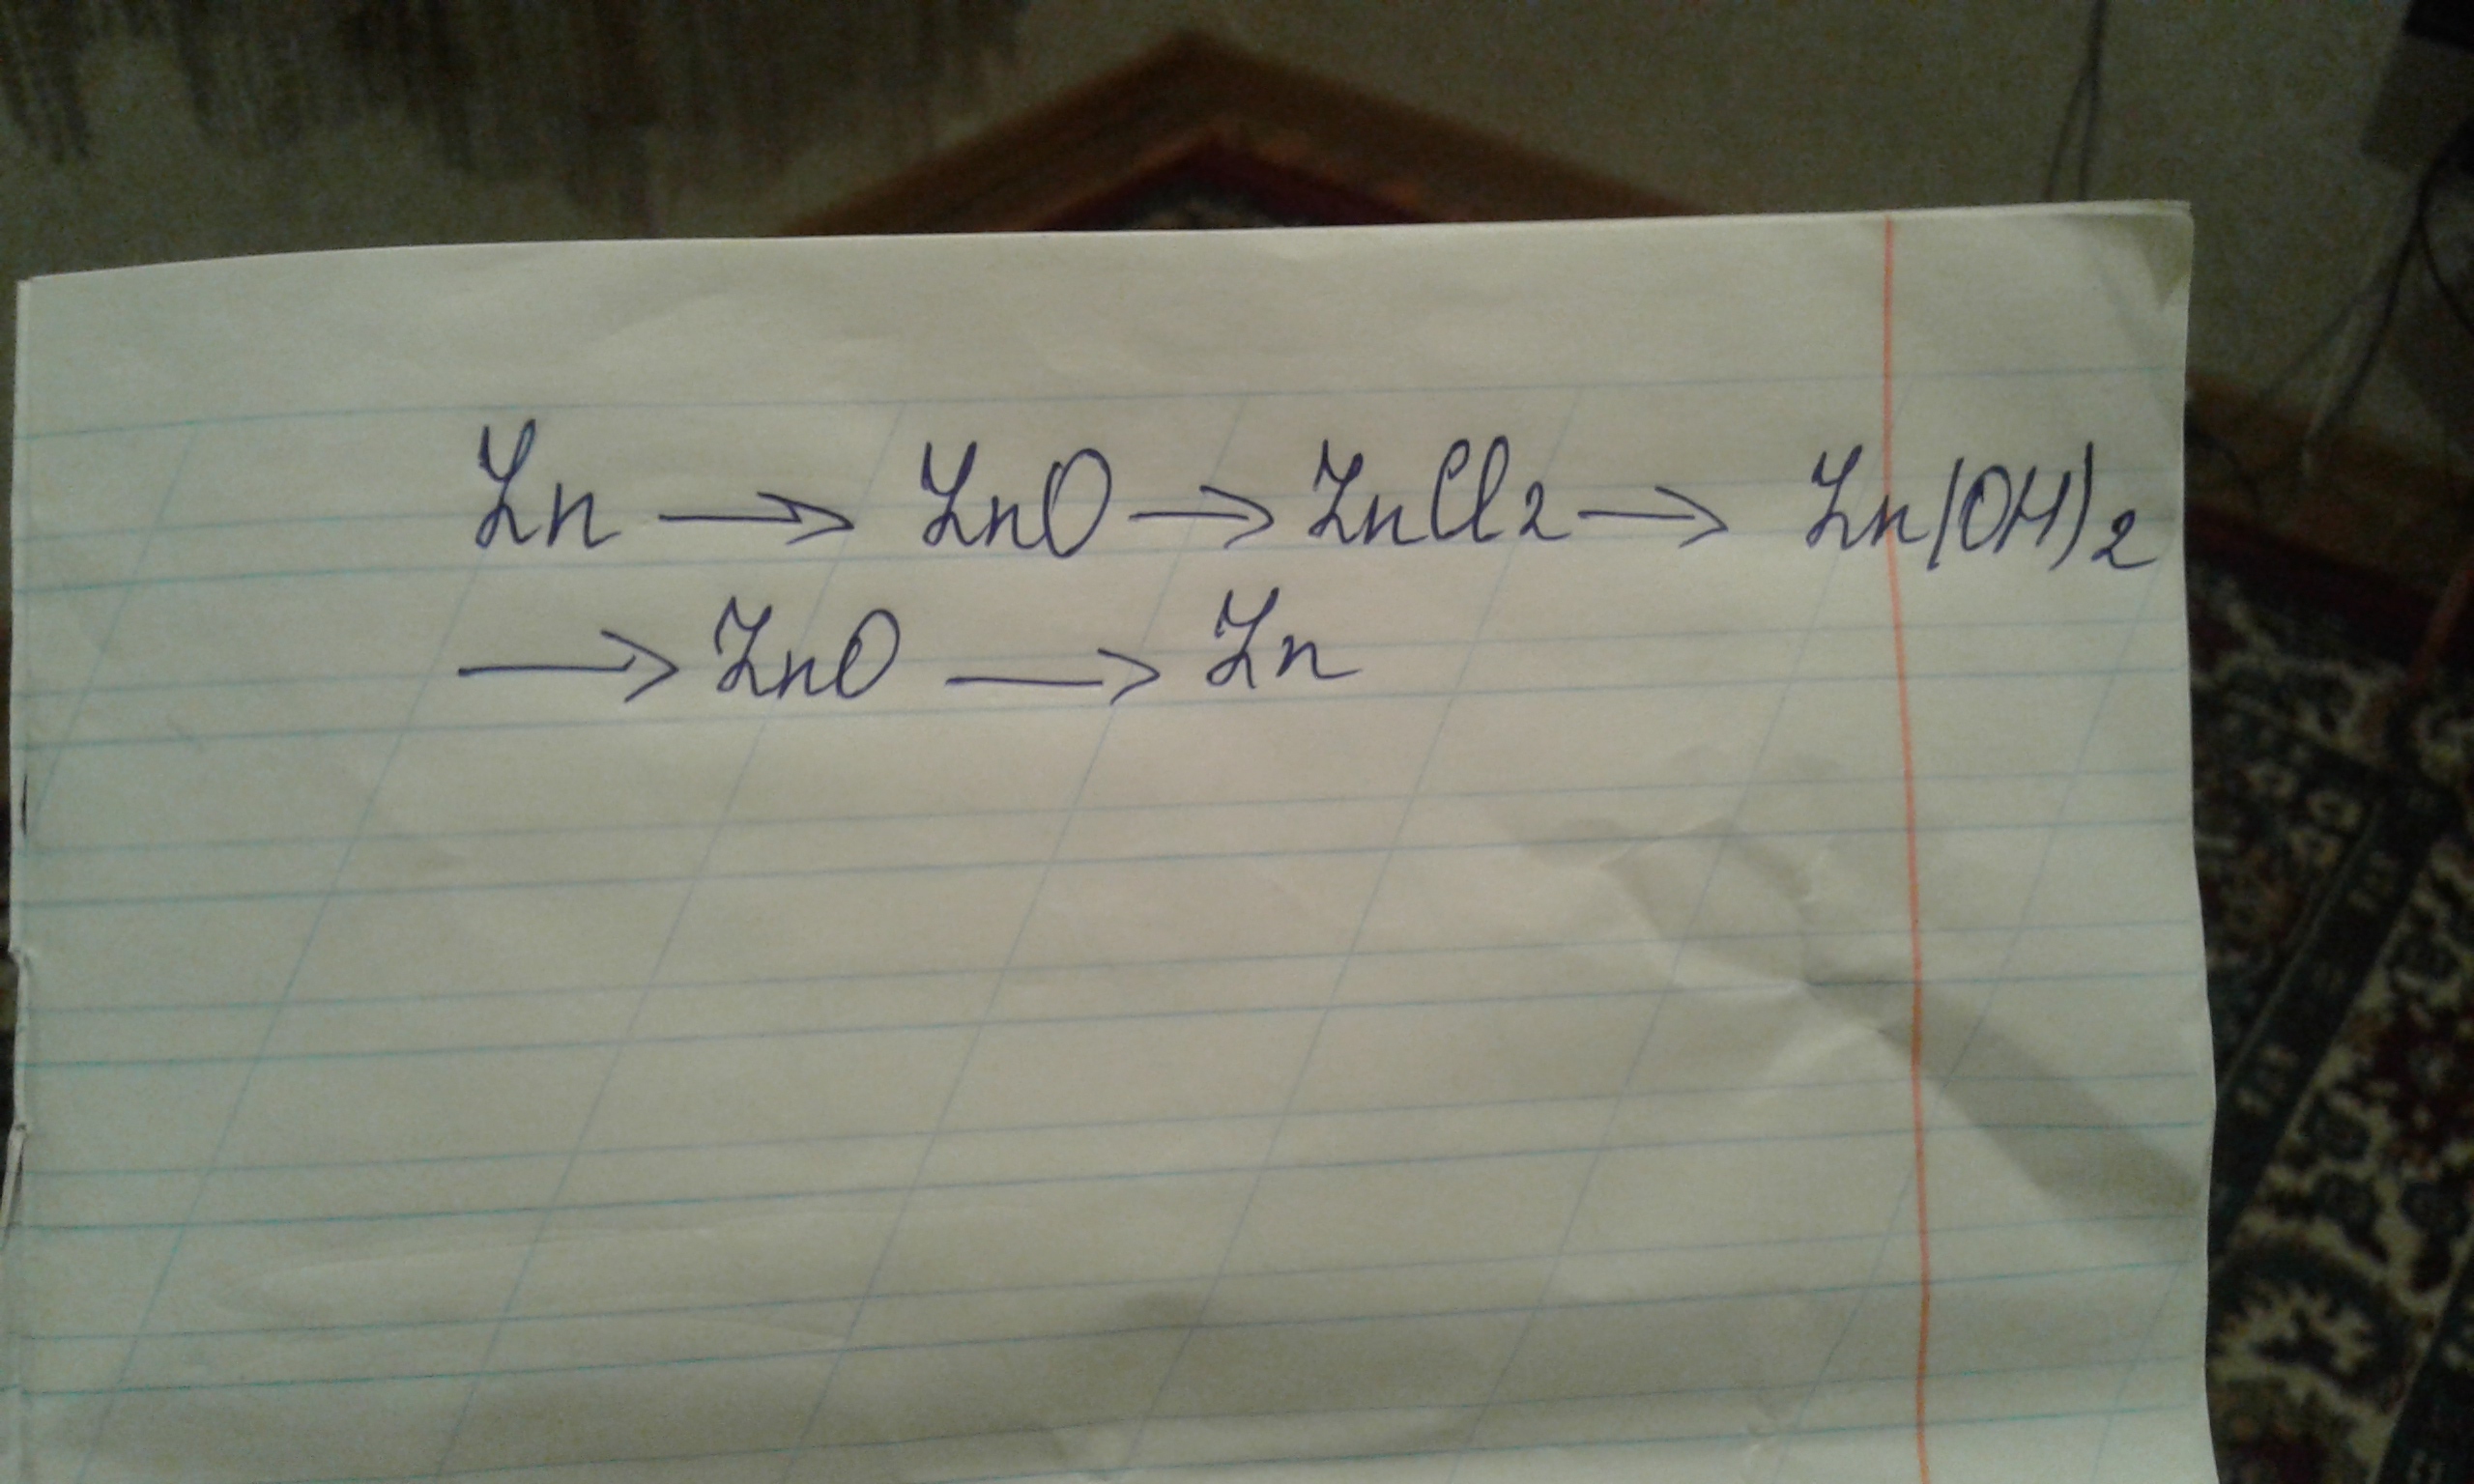 Zn → ZnO → ZnCl2 → Zn(OH)2
→ ZnO → Zn